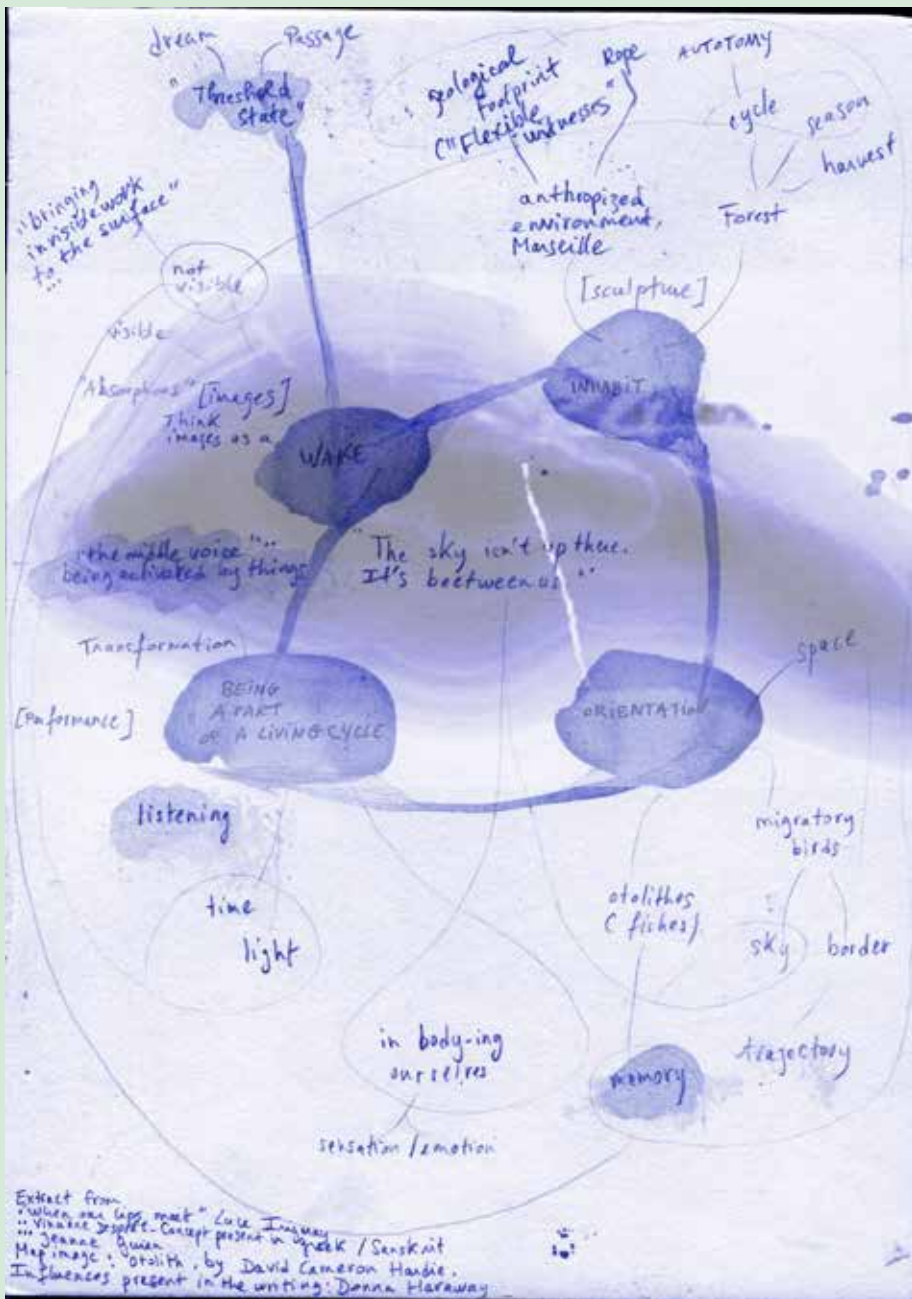 dream
Passage
"Threshold
State"
geological
Footprint
("Flexible
witnesses"
Rope
AUTOTOMY
cycle
season
harvest
Forest
anthropized
environment,
Marseille
"bringing
invisible work
to the surface"
...
not
visible
visible
[sculpture]
INHABIT
"Absorptions" [images]
Think
images as a
WAKE
"the middle voice"..
being activated by things
"The sky isn't up there.
It's beetween us"
Transformation
[Performance]
BEING
A PART
OF A LIVING CYCLE
ORIENTATION
space
listening
time
light
migratory
birds
otolithes
(fishes)
sky
border
in body-ing
ourselves
memory
trajectory
sensation/emotion
Extract from
"When our lips meet" Luce Irigaray
Vinciane Despret - Concept present in greek / Sanskrit
... Jeanne
Map image: Otolith, by David Cameron Hardie.
Influences present in the writing: Donna Haraway